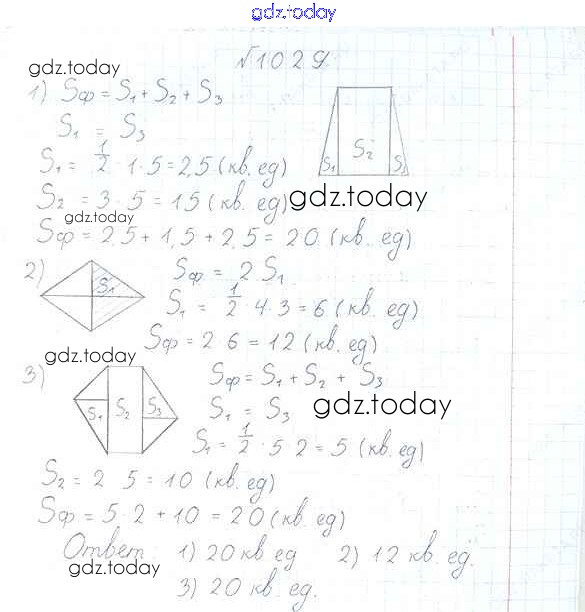 gdz.today
№1029
gdz.today
1) Sф = S1 + S2 + S3
S1 = S3
S1 = 1/2 · 1 · 5 = 2,5 (кв. ед)
S1 S2 S3
S2 = 3 · 5 = 15 (кв. ед)
gdz.today
gdz.today
Sф = 2,5 + 1,5 + 2,5 = 20 (кв. ед)
2) S1 Sф = 2 S1
S1 = 1/2 · 4 · 3 = 6 (кв. ед)
Sф = 2 · 6 = 12 (кв. ед)
gdz.today
3) Sф = S1 + S2 + S3
S1 S2 S3 S1 = S3
gdz.today
S1 = 1/2 · 5 2 = 5 (кв. ед)
S2 = 2 5 = 10 (кв. ед)
Sф = 5 · 2 + 10 = 20 (кв. ед)
Ответ: 1) 20 кв ед 2) 12 кв. ед.
gdz.today
3) 20 кв. ед.